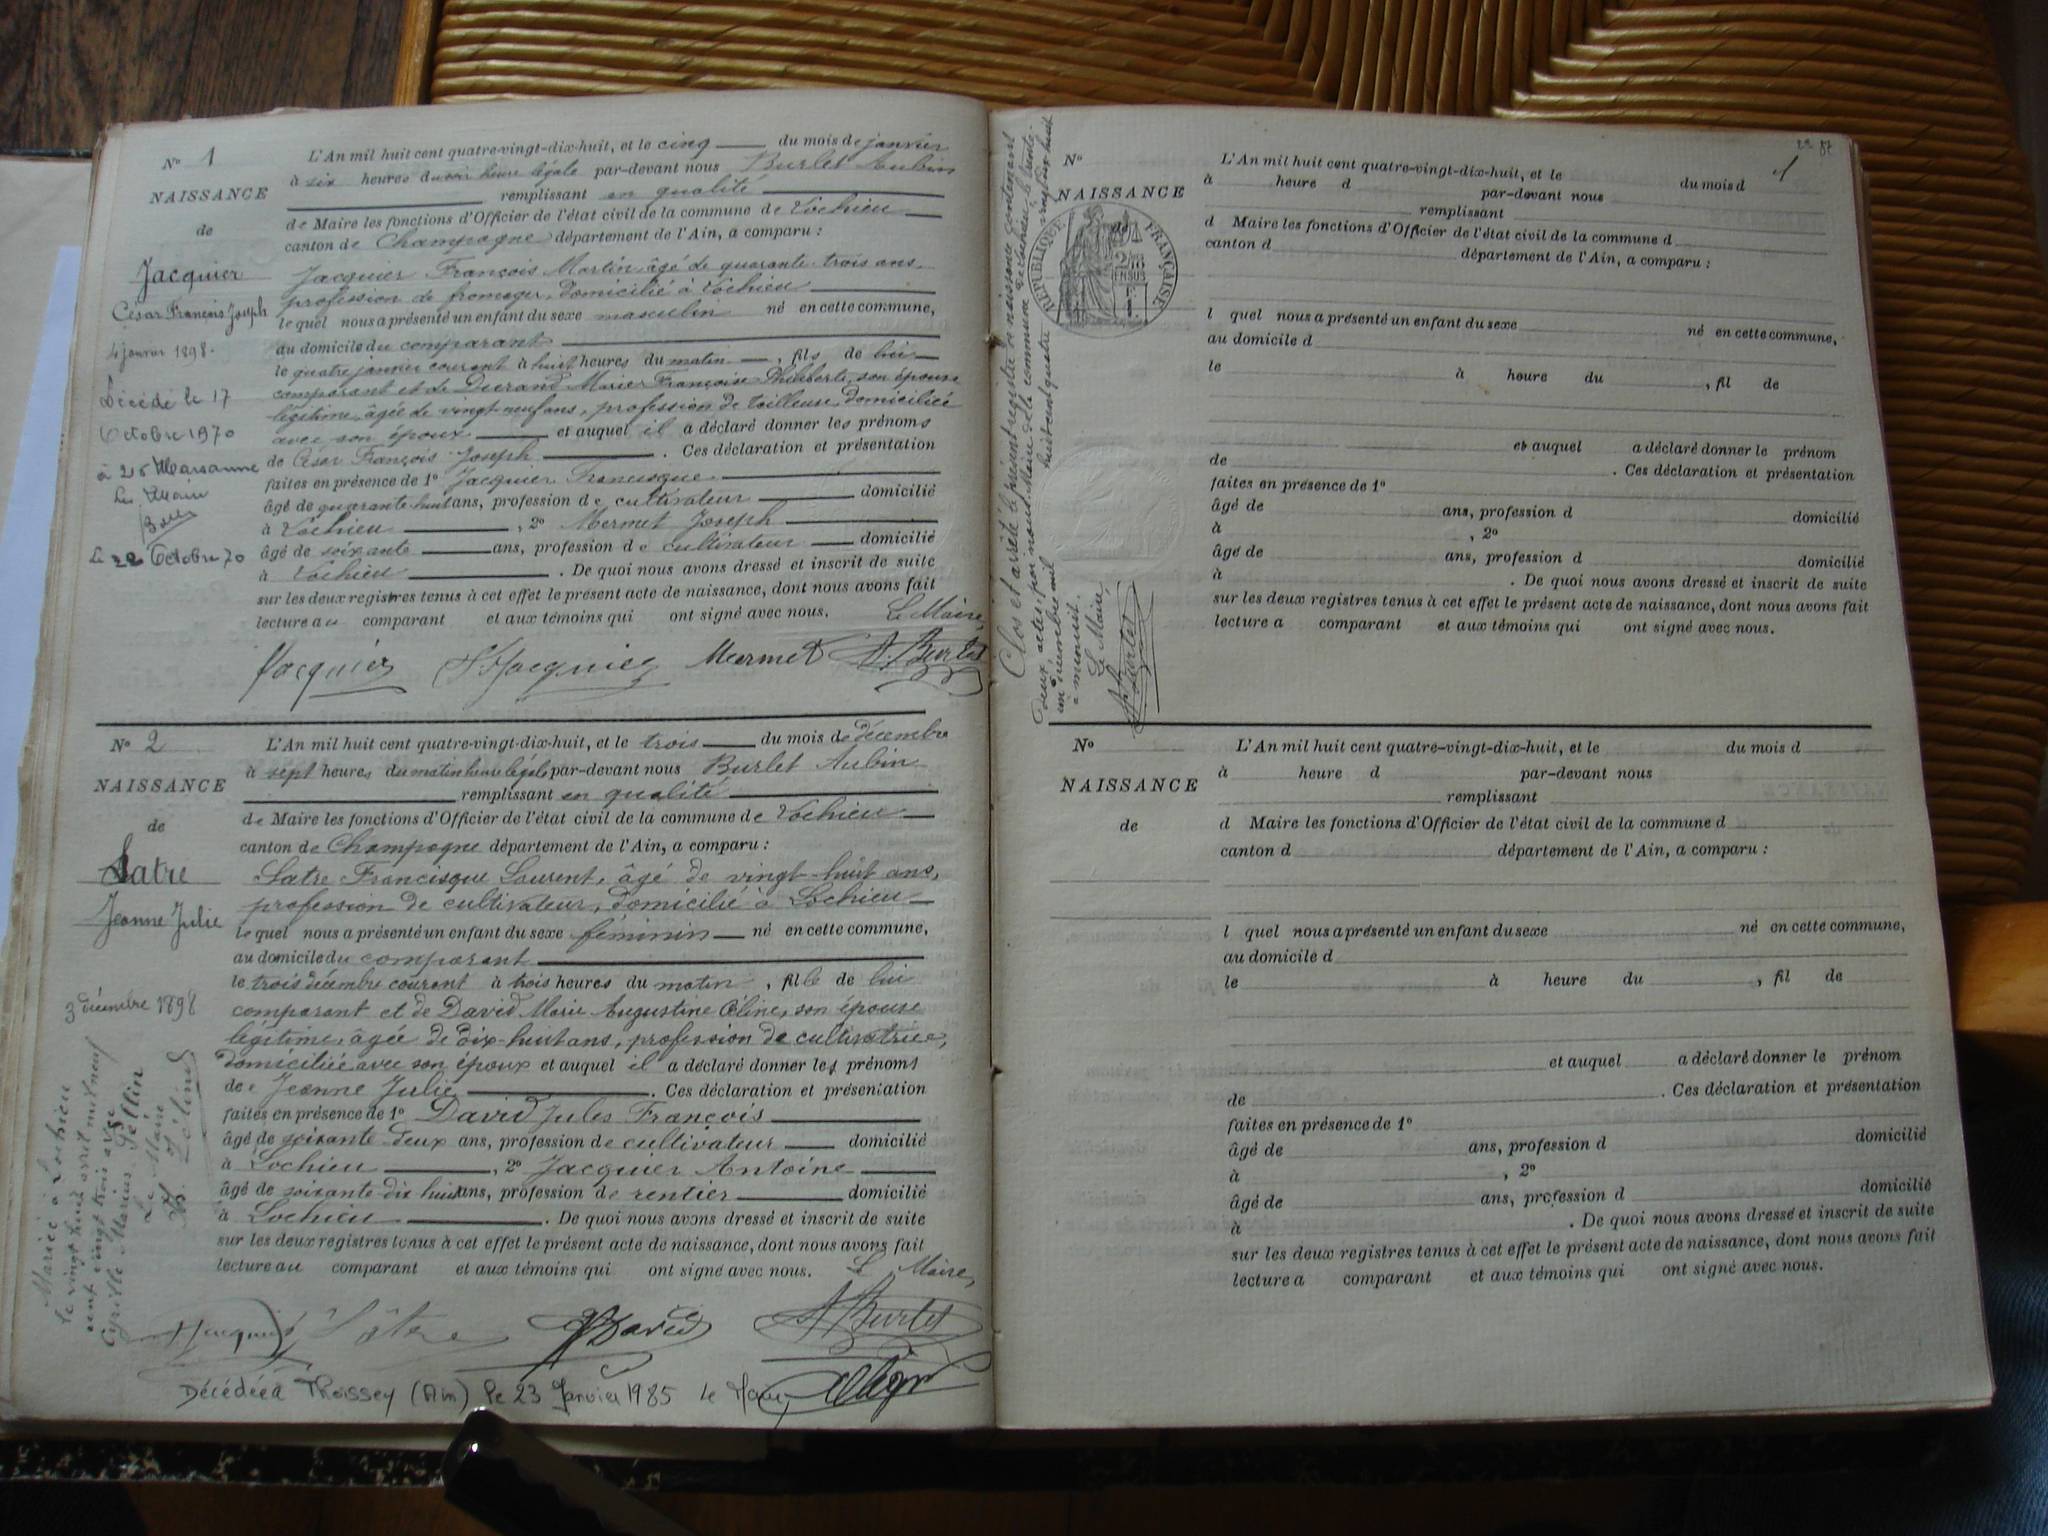 N° 1
NAISSANCE
de
Jacquier
César François Joseph
4 janvier 1898.
Décédé le 17
Octobre 1970
à
Le Maire
Le 22 Octobre 70
L'An mil huit cent quatre-vingt-dix-huit, et le cinq du mois de janvier
à six heures du soir heure légale par-devant nous Burlet Aubin
remplissant en qualité
de Maire les fonctions d'Officier de l'état civil de la commune de Lochieu
canton de Champagne département de l'Ain, a comparu :
Jacquier François Martin âgé de quarante-trois ans,
profession de fromager, domicilié à Lochieu
le quel nous a présenté un enfant du sexe masculin né en cette commune,
au domicile du comparant
le quatre janvier courant à huit heures du matin, fils de lui
comparant et de Durand Marie Françoise Philiberte, son épouse
légitime, âgée de vingt-neuf ans, profession de tailleuse, domiciliée
avec son époux et auquel il a déclaré donner les prénoms
de César François Joseph. Ces déclaration et présentation
faites en présence de 1° Jacquier Francisque
âgé de quarante huit ans, profession de cultivateur domicilié
à Lochieu, 2° Mermet Joseph
âgé de soixante ans, profession de cultivateur domicilié
à Lochieu. De quoi nous avons dressé et inscrit de suite
sur les deux registres tenus à cet effet le présent acte de naissance, dont nous avons fait
lecture au comparant et aux témoins qui ont signé avec nous. Le Maire,
Jacquier Jacquier Mermet A. Burlet
N° 2
NAISSANCE
de
Satre
Jeanne Julie
3 décembre 1898
Mariée à Lochieu
le vingt huit avril mil neuf
cent vingt trois avec
Cyrille Marius
Le Maire
L'An mil huit cent quatre-vingt-dix-huit, et le trois du mois de décembre
à sept heures du matin heure légale par-devant nous Burlet Aubin
remplissant en qualité
de Maire les fonctions d'Officier de l'état civil de la commune de Lochieu
canton de Champagne département de l'Ain, a comparu :
Satre Francisque Laurent, âgé de vingt-huit ans,
profession de cultivateur, domicilié à Lochieu
le quel nous a présenté un enfant du sexe féminin né en cette commune,
au domicile du comparant
le trois décembre courant à trois heures du matin, fille de lui
comparant et de David Marie Augustine Céline, son épouse
légitime, âgée de dix-huit ans, profession de cultivatrice,
domiciliée avec son époux et auquel il a déclaré donner les prénoms
de Jeanne Julie. Ces déclaration et présentation
faites en présence de 1° David Jules François
âgé de soixante deux ans, profession de cultivateur domicilié
à Lochieu, 2° Jacquier Antoine
âgé de soixante-dix huit ans, profession de rentier domicilié
à Lochieu. De quoi nous avons dressé et inscrit de suite
sur les deux registres tenus à cet effet le présent acte de naissance, dont nous avons fait
lecture au comparant et aux témoins qui ont signé avec nous. Le Maire,
Jacquier Sâtre David A. Burlet
Décédée à Thoissey (Ain) le 23 Janvier 1985 Le Maire,
1
Clos et arrêté le présent registre de naissance contenant
deux actes, par nous, Maire de la commune de Lochieu, le trente-
un décembre mil huit cent quatre-vingt-dix-huit
à minuit.
Le Maire
A. Burlet
RÉPUBLIQUE FRANÇAISE
N°
NAISSANCE
L'An mil huit cent quatre-vingt-dix-huit, et le du mois d
à heure d par-devant nous
remplissant
d Maire les fonctions d'Officier de l'état civil de la commune d
canton d département de l'Ain, a comparu :
l quel nous a présenté un enfant du sexe né en cette commune,
au domicile d
le à heure du , fil de
et auquel a déclaré donner le prénom
de . Ces déclaration et présentation
faites en présence de 1°
âgé de ans, profession d domicilié
à , 2°
âgé de ans, profession d domicilié
à . De quoi nous avons dressé et inscrit de suite
sur les deux registres tenus à cet effet le présent acte de naissance, dont nous avons fait
lecture a comparant et aux témoins qui ont signé avec nous.
N°
NAISSANCE
de
L'An mil huit cent quatre-vingt-dix-huit, et le du mois d
à heure d par-devant nous
remplissant
d Maire les fonctions d'Officier de l'état civil de la commune d
canton d département de l'Ain, a comparu :
l quel nous a présenté un enfant du sexe né en cette commune,
au domicile d
le à heure du , fil de
et auquel a déclaré donner le prénom
de . Ces déclaration et présentation
faites en présence de 1°
âgé de ans, profession d domicilié
à , 2°
âgé de ans, profession d domicilié
à . De quoi nous avons dressé et inscrit de suite
sur les deux registres tenus à cet effet le présent acte de naissance, dont nous avons fait
lecture a comparant et aux témoins qui ont signé avec nous.